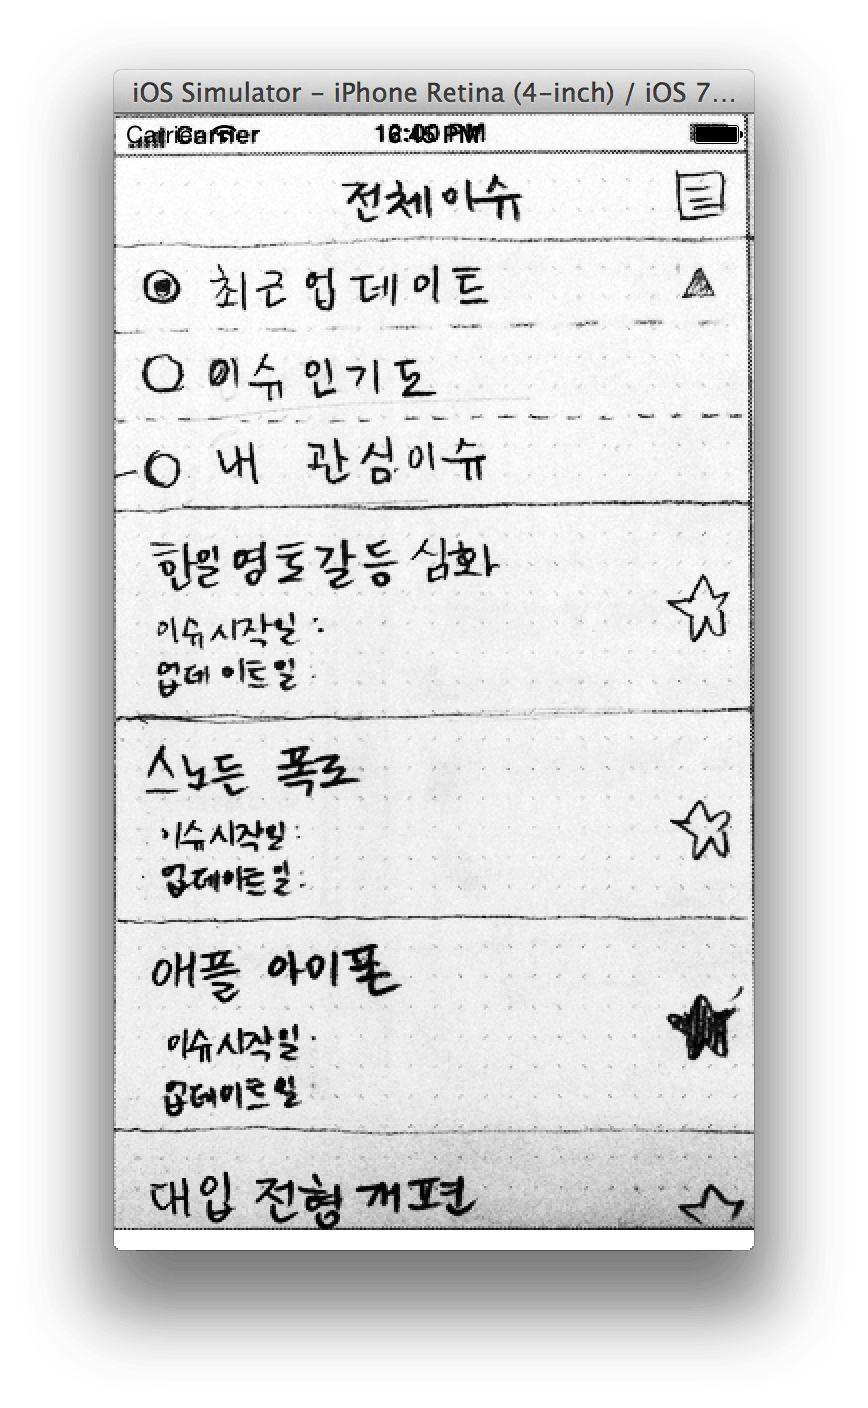 iOS Simulator – iPhone Retina (4-inch) / iOS 7…
Carrier
전체이슈
최근업데이트
이슈인기도
내 관심이슈
한일영토갈등심화
이슈시작일:
업데이트일:
스노든 폭로
이슈시작일:
업데이트일:
애플 아이폰
이슈시작일:
업데이트일
대입 전형 개편